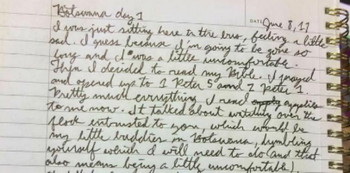 Botswana day 1
DATE: June 8, 17
I was just sitting here in the bus, feeling a little
sad. I guess because I'm going to be gone so
long and I was a little uncomfortable.
Then I decided to read my Bible. I prayed
and opened up to 1 Peter 5 and 2 Peter 1
Pretty much everything I read applies
to me now. It talked about watching over the
flock entrusted to you which would be
my little buddies in Botswana, humbling
yourself which I will need to do and that
also means being a little uncomfortable).